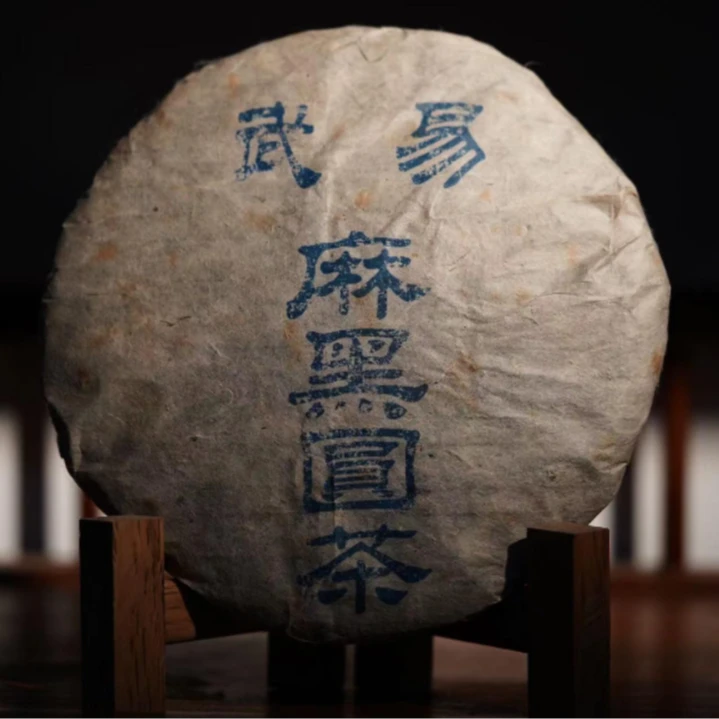 易武
麻黑圓茶